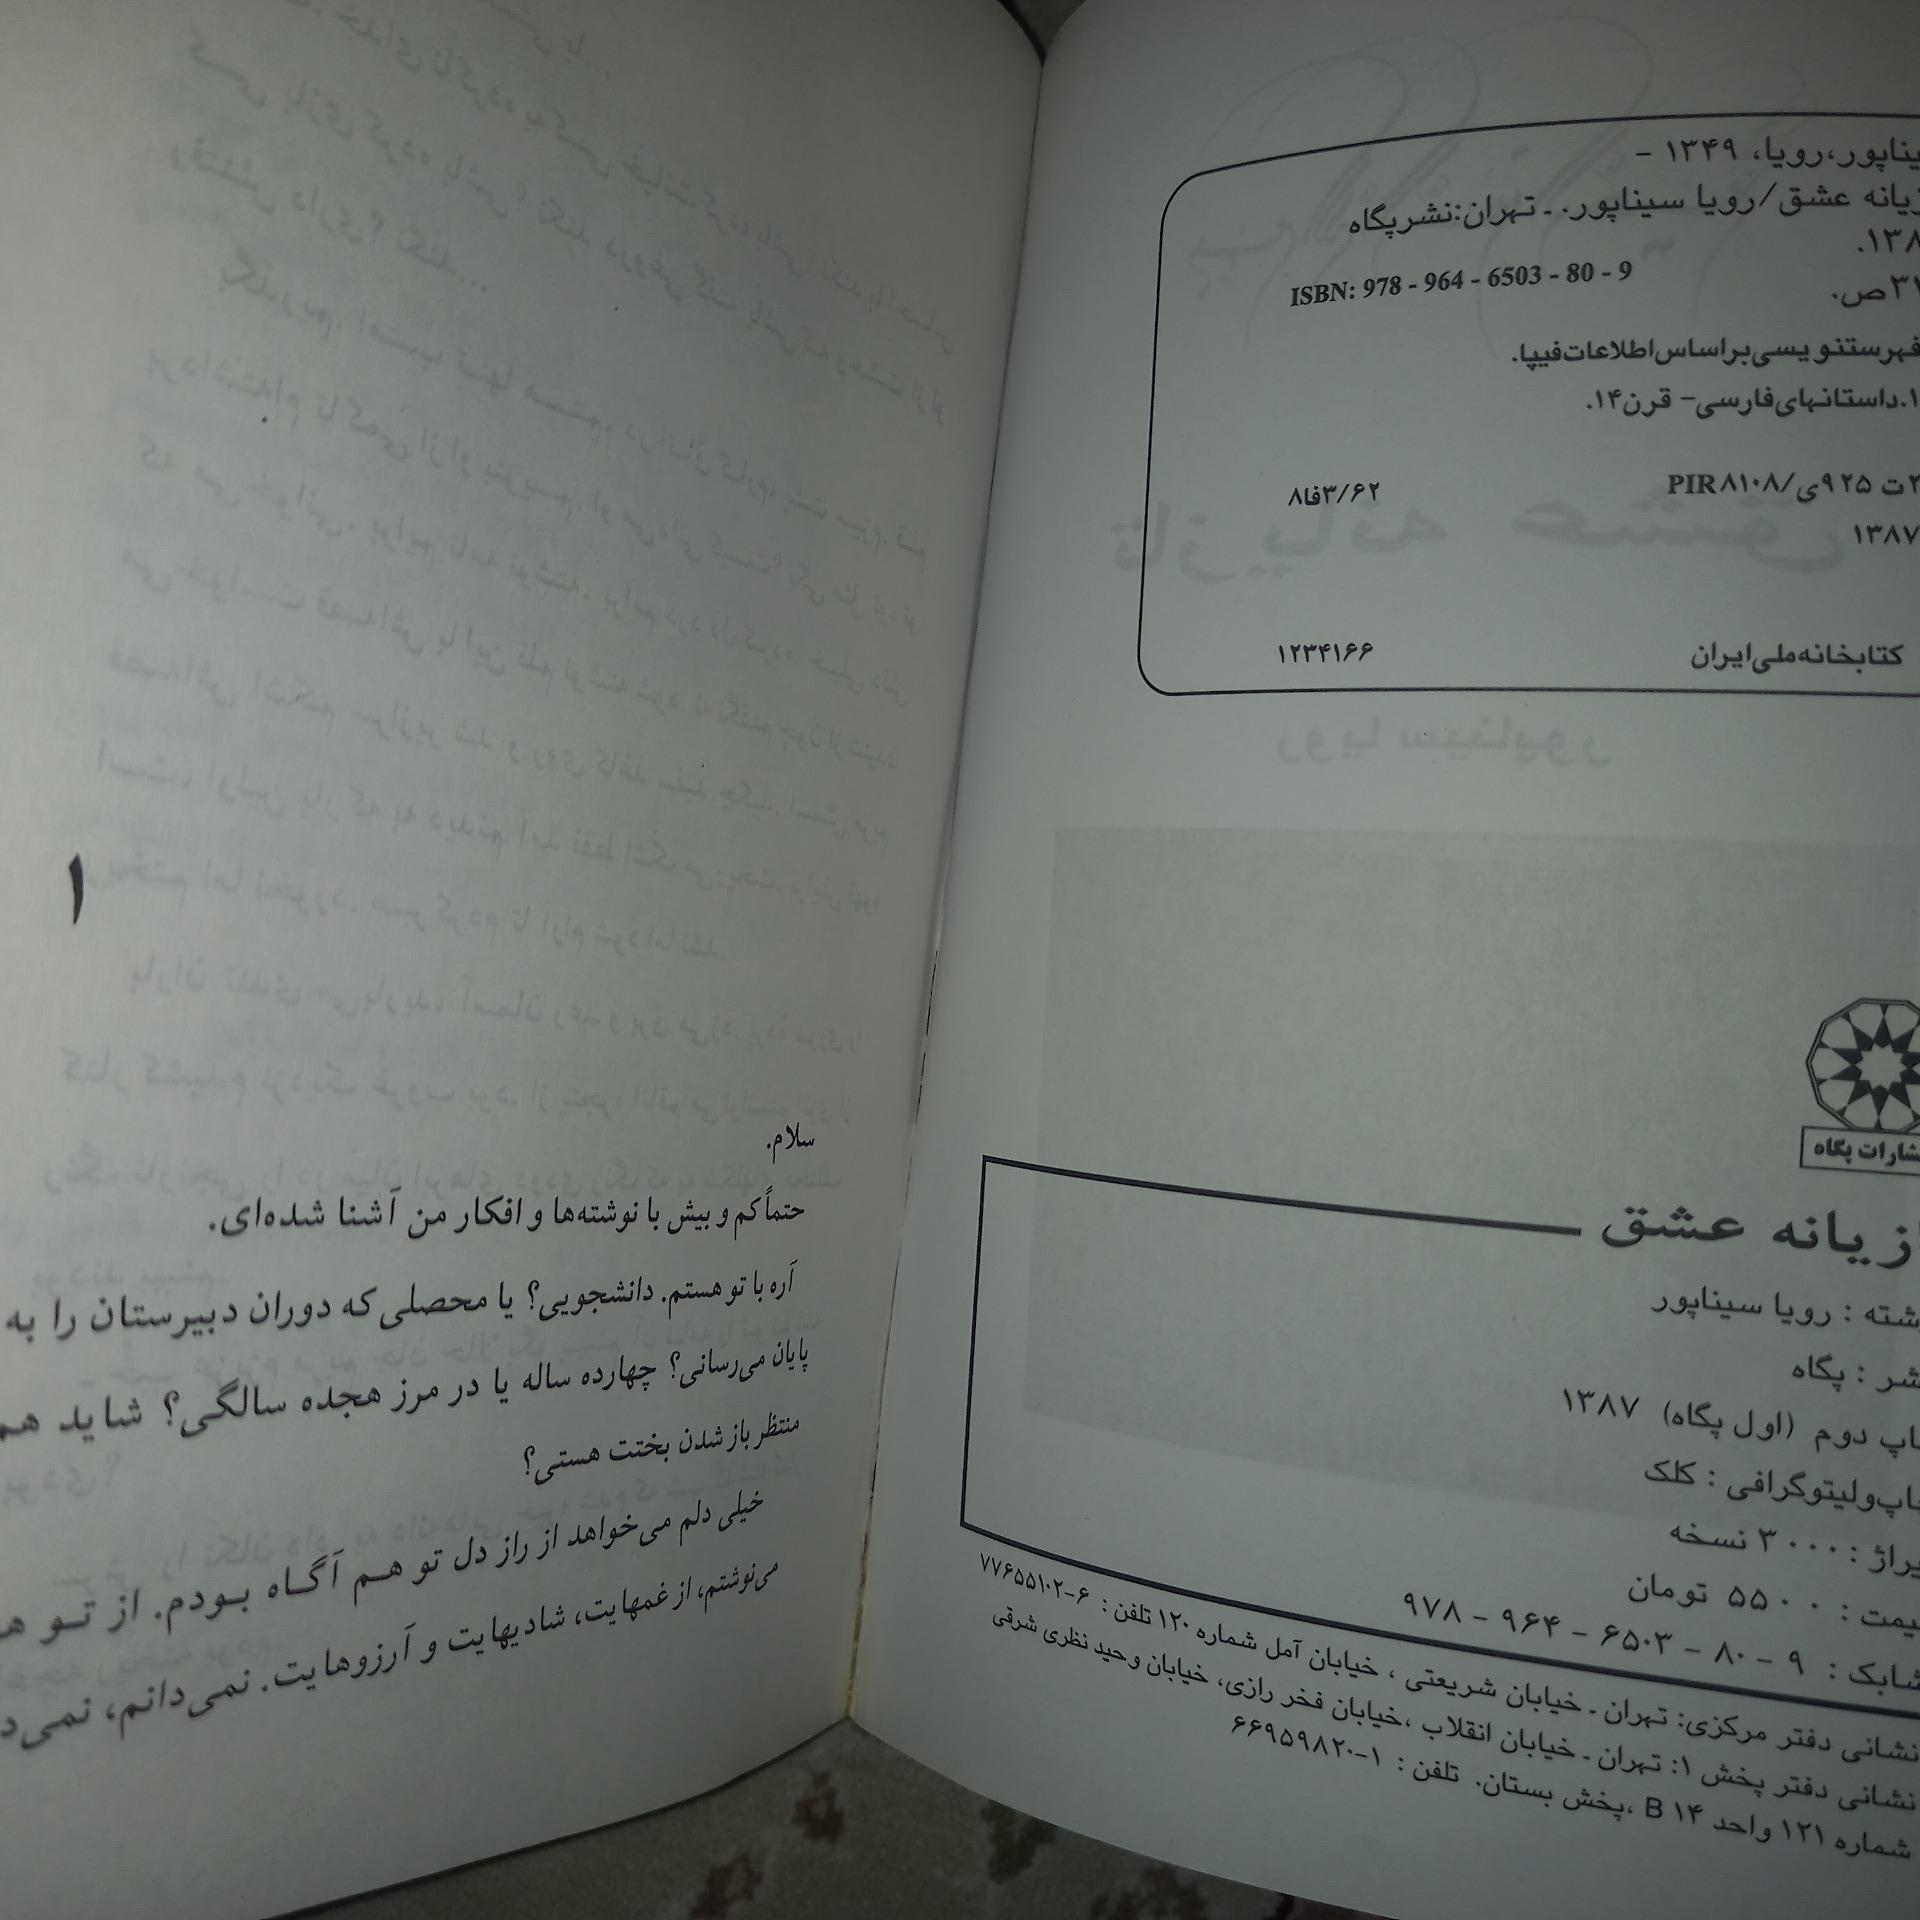 یناپور،رویا، ۱۳۴۹ -
زیانه عشق/رویا سیناپور. ـ تهران:نشرپگاه
۱۳۸.
۳۱ص.
ISBN: 978 - 964 - 6503 - 80 - 9
فهرستنویسی‌براساس‌اطلاعات‌فیپا.
۱.داستانهای‌فارسی- قرن۱۴.
۲ت ۹۲۵ی/PIR۸۱۰۸
۸فا۳/۶۲
۱۳۸۷
کتابخانه‌ملی‌ایران
۱۲۳۴۱۶۶
شارات پگاه
ازیانه عشق
شته : رویا سیناپور
شر : پگاه
اپ دوم (اول پگاه) ۱۳۸۷
اپ‌ولیتوگرافی : کلک
یراژ : ۳۰۰۰ نسخه
یمت : ۵۵۰۰ تومان
شابک : ۹ - ۸۰ - ۶۵۰۳ - ۹۶۴ - ۹۷۸
نشانی دفتر مرکزی: تهران ـ خیابان شریعتی ، خیابان آمل شماره ۱۲۰ تلفن : ۶-۷۷۶۵۵۱۰۲
نشانی دفتر پخش ۱: تهران ـ خیابان انقلاب ،خیابان فخر رازی، خیابان وحید نظری شرقی
شماره ۱۲۱ واحد ۱۴ B ،پخش بستان. تلفن : ۱-۶۶۹۵۹۸۲۰
۱
سلام.
حتماً کم و بیش با نوشته‌ها و افکار من آشنا شده‌ای.
آره با تو هستم. دانشجویی؟ یا محصلی که دوران دبیرستان را به
پایان می‌رسانی؟ چهارده ساله یا در مرز هجده سالگی؟ شاید هم
منتظر باز شدن بختت هستی؟
خیلی دلم می‌خواهد از راز دل تو هم آگاه بودم. از تو ه
می‌نوشتم، از غمهایت، شادیهایت و آرزوهایت. نمی‌دانم، نمی‌د